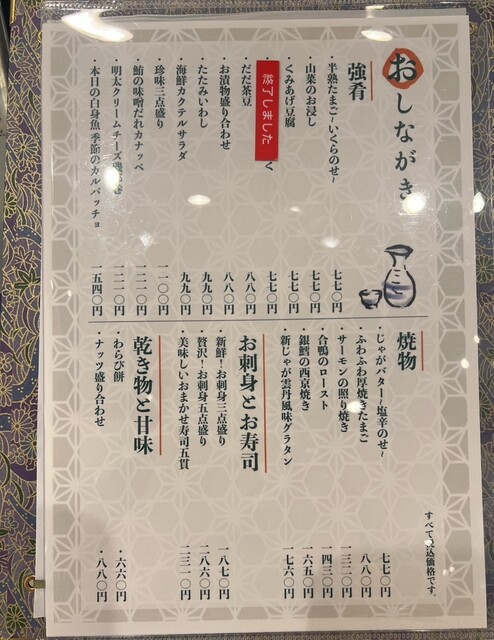 おしながき
強肴
・半熟たまご~いくらのせ~ 七七〇円
・山菜のお浸し 七七〇円
・くみあげ豆腐 七七〇円
終了しました 七七〇円
・だだ茶豆 八八〇円
・お漬物盛り合わせ 八八〇円
・たたみいわし 九九〇円
・海鮮カクテルサラダ 九九〇円
・珍味三点盛り 一一〇〇円
・鮪の味噌だれカナッペ 一二一〇円
・明太クリームチーズ 一二一〇円
・本日の白身魚 季節のカルパッチョ 一五四〇円
すべて税込価格です。
焼物
・じゃがバター~塩辛のせ~ 七七〇円
・ふわふわ厚焼きたまご 八八〇円
・サーモンの照り焼き 一三二〇円
・合鴨のロースト 一四三〇円
・銀鱈の西京焼き 一六五〇円
・新じゃが雲丹風味グラタン 一七六〇円
お刺身とお寿司
・新鮮!お刺身三点盛り 一八七〇円
・贅沢!お刺身五点盛り 二八六〇円
・美味しいおまかせ寿司五貫 二三一〇円
乾き物と甘味
・わらび餅 ・六六〇円
・ナッツ盛り合わせ ・八八〇円